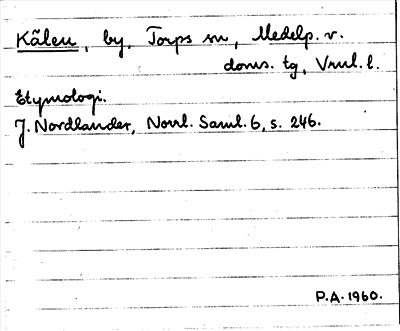 Kälen, by, Torps sn, Medelp. v.
doms. tg, Vrnl. l.
Etymologi.
J. Nordlander, Norrl. Saml. 6, s. 246.
P.A. 1960.